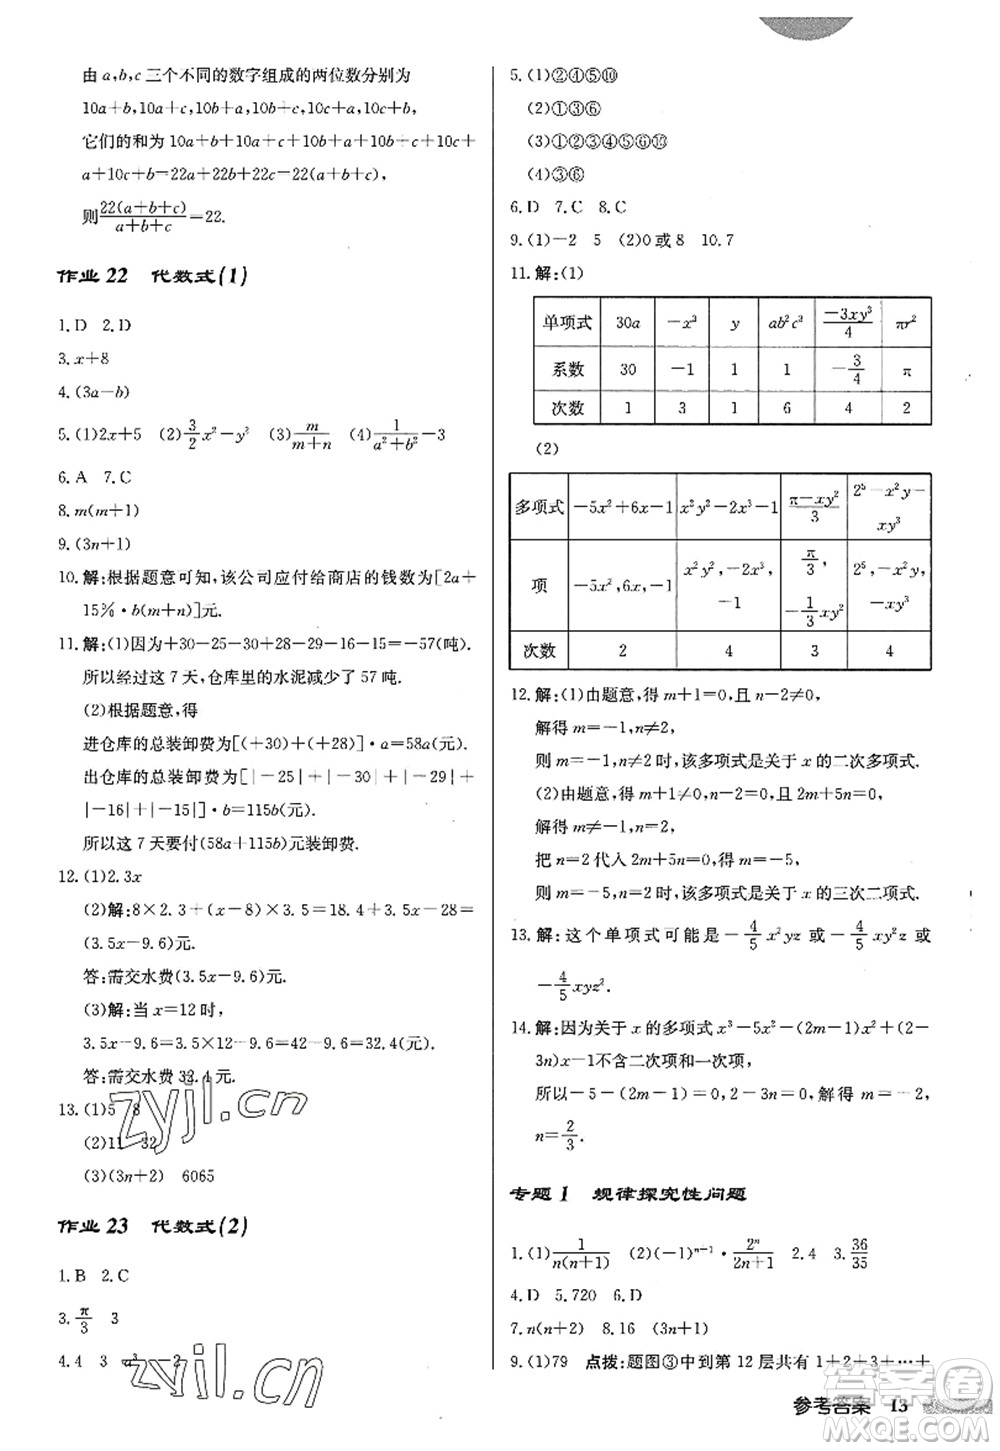 由 a,b,c 三个不同的数字组成的两位数分别为
10a+b,10a+c,10b+a,10b+c,10c+a,10c+b,
它们的和为 10a+b+10a+c+10b+a+10b+c+10c+
a+10c+b=22a+22b+22c=22(a+b+c),
则22(a+b+c)/a+b+c=22.
作业 22 代数式(1)
1.D 2.D
3.x+8
4.(3a-b)
5.(1)2x+5 (2)3/2x²-y³ (3)m/m+n (4)1/a²+b²-3
6.A 7.C
8.m(m+1)
9.(3n+1)
10.解:根据题意可知,该公司应付给商店的钱数为[2a+
15%·b(m+n)]元.
11.解:(1)因为+30-25-30+28-29-16-15=-57(吨).
所以经过这 7 天,仓库里的水泥减少了 57 吨.
(2)根据题意,得
进仓库的总装卸费为[(+30)+(+28)]·a=58a(元).
出仓库的总装卸费为[|-25|+|-30|+|-29|+
|-16|+|-15|]·b=115b(元).
所以这 7 天要付(58a+115b)元装卸费.
12.(1)2.3x
(2)解:8×2.3+(x-8)×3.5=18.4+3.5x-28=
(3.5x-9.6)元.
答:需交水费(3.5x-9.6)元.
(3)解:当 x=12 时,
3.5x-9.6=3.5×12-9.6=32.4(元).
答:需交水费 32.4 元.
13.(1)5 8
(2)11 32
(3)(3n+2) 6065
作业 23 代数式(2)
1.B 2.C
3.π/3 3
4.4 3 a³ 2
5.(1)②④⑤⑩
(2)①③⑥
(3)①②③④⑤⑥⑩
(4)③⑥
6.D 7.C 8.C
9.(1)-2 5 (2)0或8 10.7
11.解:(1)
单项式 30a -x³ y ab²c³ -3xy³/4 πr²
系数 30 -1 1 1 -3/4 π
次数 1 3 1 6 4 2
(2)
多项式 -5x²+6x-1 x²y²-2x³-1 π-xy²/3 2⁵-x²y-xy³
项 -5x²,6x,-1 x²y²,-2x³,-1 π/3,-1/3xy² 2⁵,-x²y,-xy³
次数 2 4 3 4
12.解:(1)由题意,得 m+1=0,且 n-2≠0,
解得 m=-1,n≠2,
则 m=-1,n≠2 时,该多项式是关于 x 的二次多项式.
(2)由题意,得 m+1≠0,n=2,且 2m+5n=0,
解得 m≠-1,n=2,
把 n=2 代入 2m+5n=0,得 m=-5,
则 m=-5,n=2 时,该多项式是关于 x 的三次二项式.
13.解:这个单项式可能是-4/5x²yz 或-4/5xy²z 或
-4/5xyz².
14.解:因为关于 x 的多项式 x³-5x²-(2m-1)x²+(2-
3n)x-1不含二次项和一次项,
所以-5-(2m-1)=0,2-3n=0,解得 m=-2,
n=2/3.
专题 1 规律探究性问题
1.(1)1/n(n+1) (2)(-1)ⁿ⁺¹·2ⁿ/2n+1 2.4 3.36/35
4.D 5.720 6.D
7.n(n+2) 8.16 (3n+1)
9.(1)79 点拨:题图③中到第 12 层共有 1+2+3+…+
参考答案 13
zyjl.cn
zyjl.cn
答案圈